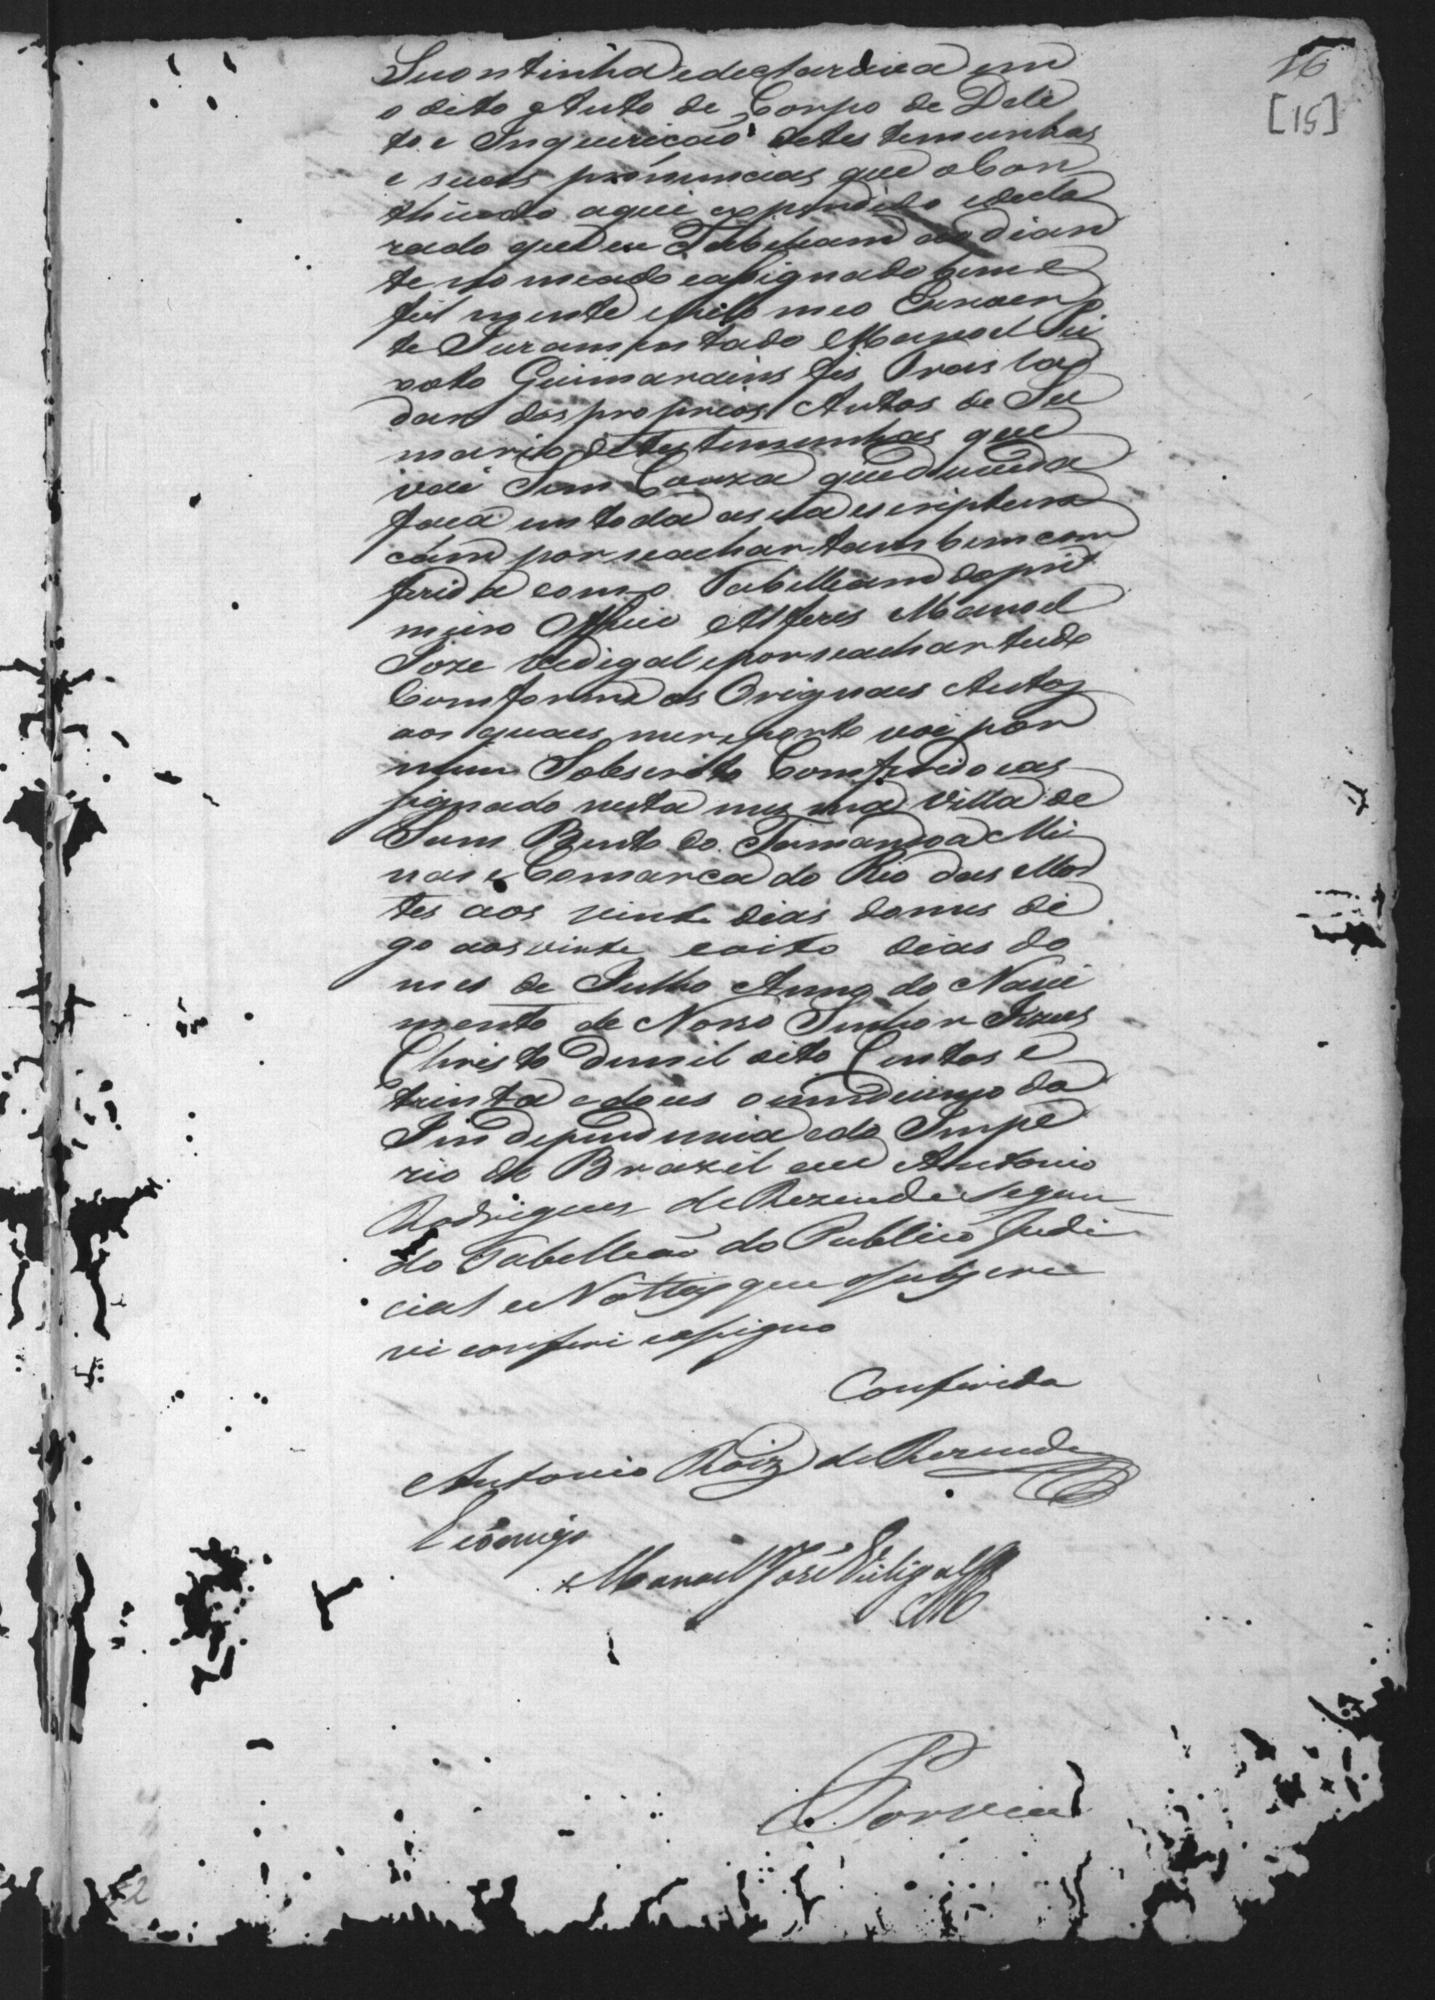 16
[15]
Secontinha edeclarava em
o dito Auto de Corpo de Deli
to e Inquirição detestemunhas
e suas pronuncias que o Con
thiudo aqui expendido edecla
rado que eu Tabeliam ao dian
te nomeado eassignado bem e
fiel mente epelo meo Escreven
te Juramentado Manoel
Guimarains fis Traslad
dar dos proprios Autos de Su
mario deTestemunhas que
vai Sem Couza queduvida
faça em toda asua escriptura
cám por seachar tambem con
ferida como Tabelleam dopri
meiro Officio Alferes Manoel
Joze Vedigal eporseachar tudo
Comforme os Originaes Autos
aos quaes mereporto vai por
mim Sobescrito Comferido eas
signado nesta mesma Villa de
Sam Bento do Tamandoa Mi
nas e Comarca do Rio das Mor
tes aos vinte dias domes di
go aos vinte eoito dias do
mes de Julho Anno do Nasci
mento de Nosso Senhor Jezus
Christo demil oito Centos e
trinta edous oundecimo da
Independencia edo Impe
rio do Brazil eeu Antonio
Rodrigues de Rezende Segun
do Tabelleão do Publico Judi
cial e Nottas que osubscre
vi conferi eassigno
Conferida
Antonio Roiz de Rezende
Ecomigo
Manoel José Vidigal